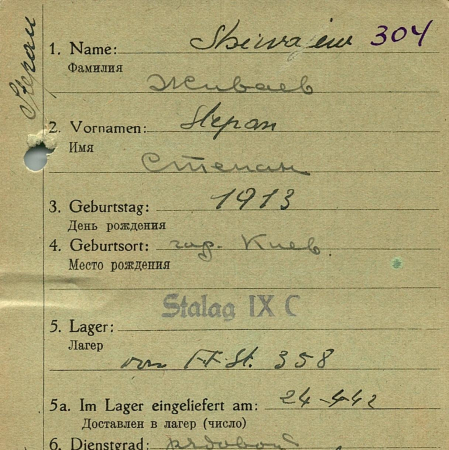 Stepan
1. Name: Shiwajew 304
Фамилия Живаев
2. Vornamen: Stepan
Имя
Степан
3. Geburtstag: 1913
День рождения
4. Geburtsort: гор. Киев
Место рождения
Stalag IX C
5. Lager:
Лагер
von Ff. St. 358
5a. Im Lager eingeliefert am: 24-4-42
Доставлен в лагер (число)
6. Dienstgrad: рядовой